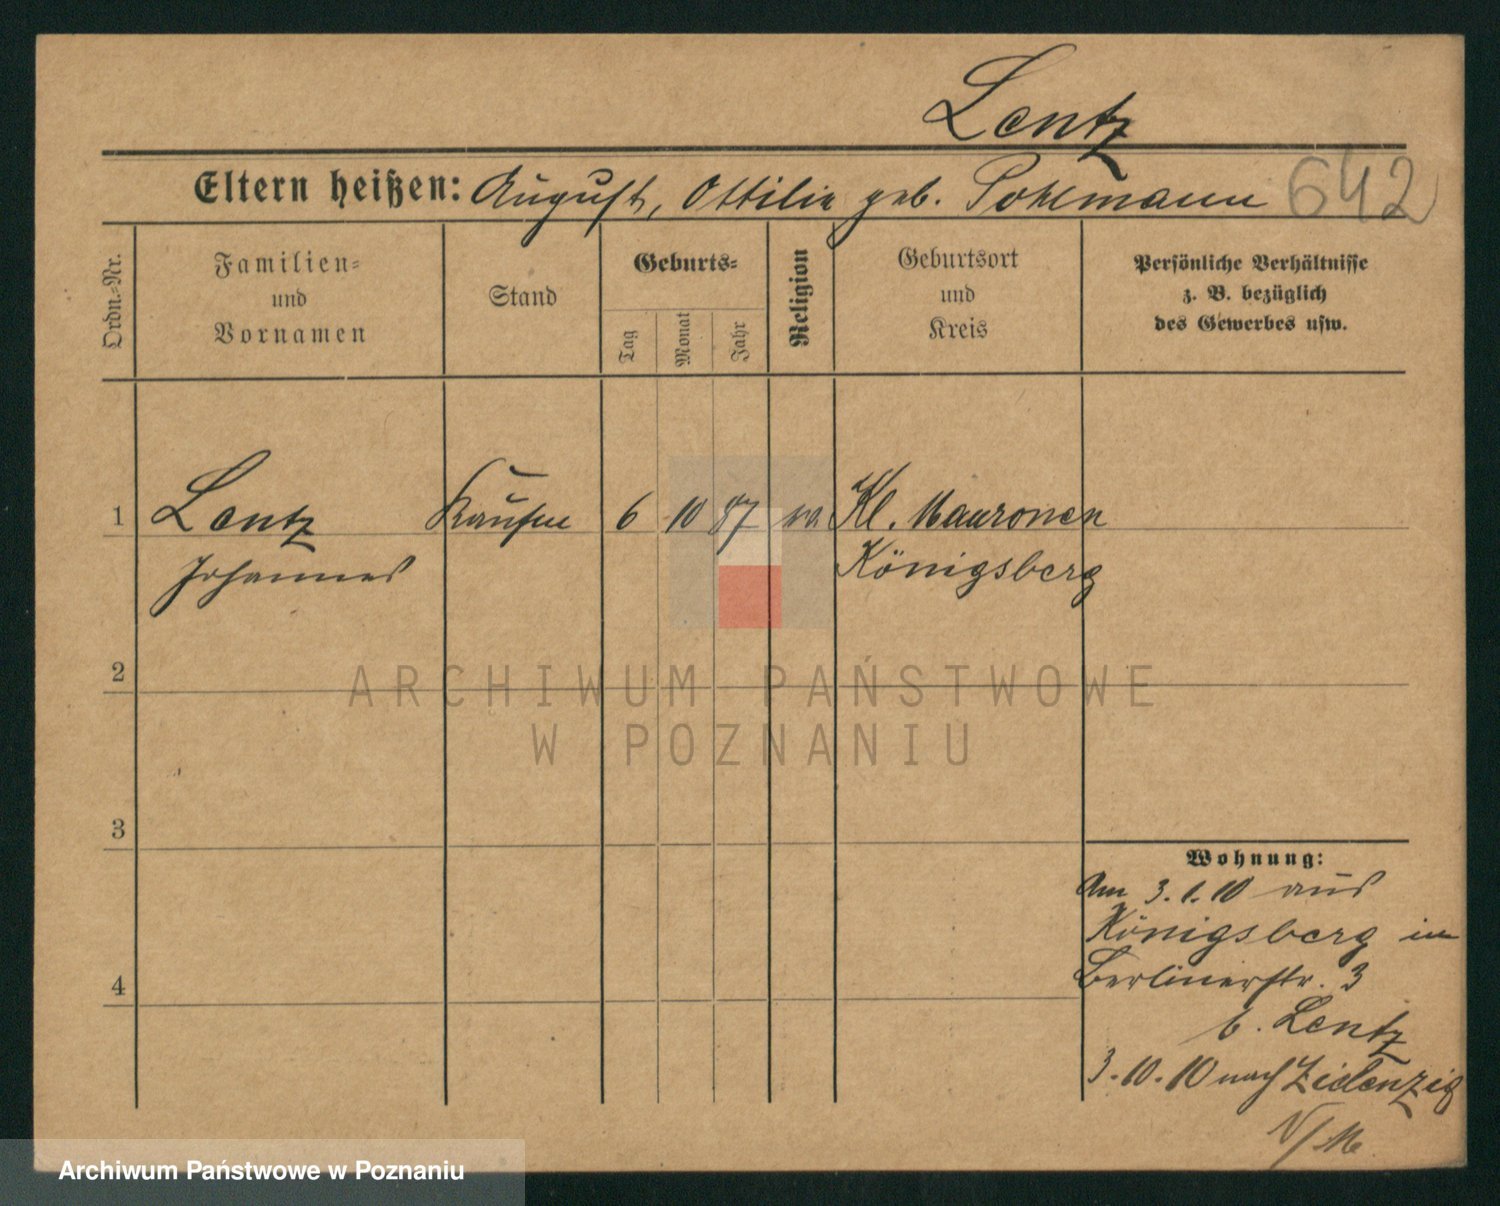 Lentz
Eltern heißen: August, Ottilie geb. Pohlmann 642
Ordn.-Nr.
Familien-
und
Vornamen
Stand
Geburts-
Tag
Monat
Jahr
Religion
Geburtsort
und
Kreis
Persönliche Verhältnisse
z. B. bezüglich
des Gewerbes usw.
1 Lentz Kaufm 6 10 87 Kl. Mauronen
Johannes Königsberg
2
3
4
Wohnung:
Am 3.1.10 aus
Königsberg in
Berlinerstr. 3
b. Lentz
3.10.10 nach Zielenzig
ARCHIWUM PAŃSTWOWE
W POZNANIU
Archiwum Państwowe w Poznaniu